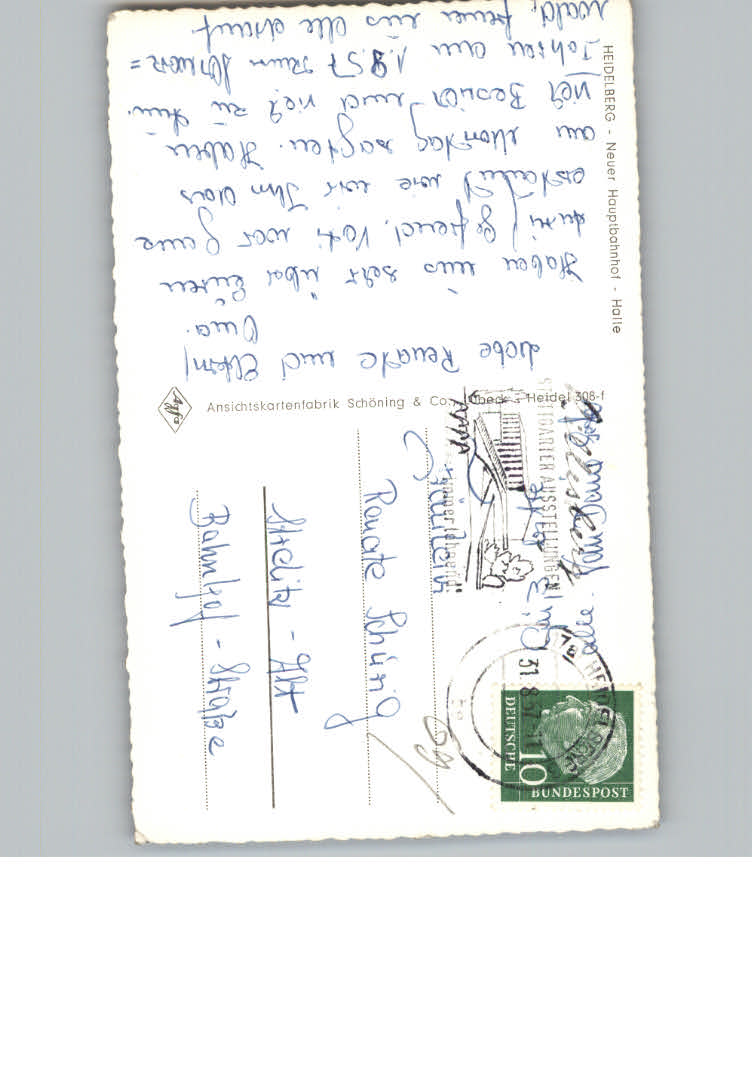 HEIDELBERG - Neuer Hauptbahnhof - Halle
Liebe Renate und Eltern!
Oma.
Haben uns sehr über Euren
gefreut. Vati war ganz
erstaunt, wie wir Ihm das
am Montag sagten. Haben
viel Besuch und viel zu tun.
Fahren am 1.9.57 zum Schwarz=
wald, freuen uns alle drauf.
Ansichtskartenfabrik Schöning & Co., Lübeck Heidel 308-f
Agfa
STUTTGARTER AUSSTELLUNGEN
HEIDELBERG
31.8.57
DEUTSCHE
BUNDESPOST
10
Fräulein
Renate Schürig
Strelitz - Alt
Bahnhof - Straße